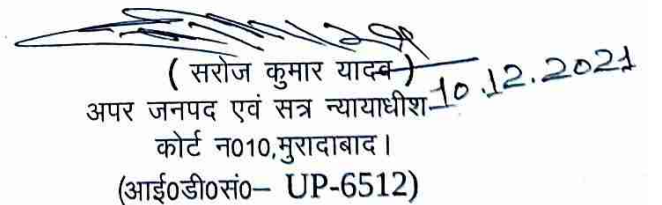 ( सरोज कुमार यादव )
अपर जनपद एवं सत्र न्यायाधीश 10.12.2021
कोर्ट न010,मुरादाबाद।
(आई0डी0सं0– UP-6512)